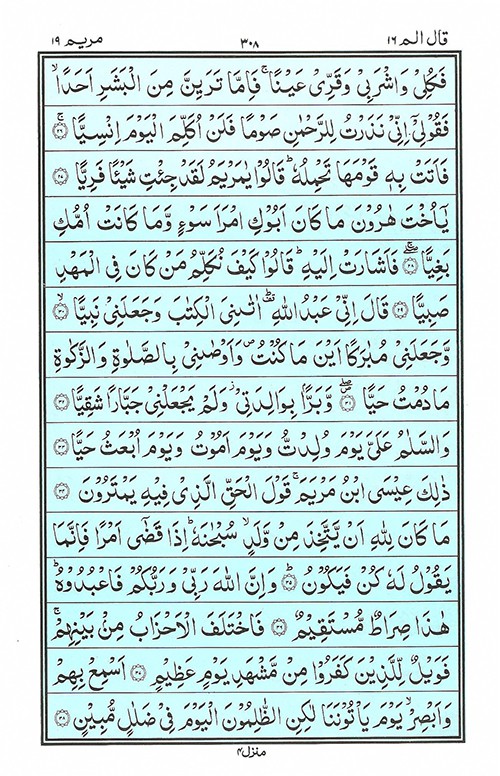 قال الم ١٦ ٣٠٨ مريم ١٩
فَكُلِىْ وَاشْرَبِىْ وَقَرِّىْ عَيْنًا ۚ فَاِمَّا تَرَيِنَّ مِنَ الْبَشَرِ اَحَدًا ۙ
فَقُوْلِىْٓ اِنِّىْ نَذَرْتُ لِلرَّحْمٰنِ صَوْمًا فَلَنْ اُكَلِّمَ الْيَوْمَ اِنْسِيًّا ۚ
فَاَتَتْ بِهٖ قَوْمَهَا تَحْمِلُهٗ ؕ قَالُوْا يٰمَرْيَمُ لَقَدْ جِئْتِ شَيْئًا فَرِيًّا
يٰٓاُخْتَ هٰرُوْنَ مَا كَانَ اَبُوْكِ امْرَاَ سَوْءٍ وَّمَا كَانَتْ اُمُّكِ
بَغِيًّا ۖۚ فَاَشَارَتْ اِلَيْهِ ؕ قَالُوْا كَيْفَ نُكَلِّمُ مَنْ كَانَ فِى الْمَهْدِ
صَبِيًّا ٢٩ قَالَ اِنِّىْ عَبْدُ اللّٰهِ ؕ اٰتٰىنِىَ الْكِتٰبَ وَجَعَلَنِىْ نَبِيًّا ۙ ٣٠
وَّجَعَلَنِىْ مُبٰرَكًا اَيْنَ مَا كُنْتُ ۪ وَاَوْصٰنِىْ بِالصَّلٰوةِ وَالزَّكٰوةِ
مَا دُمْتُ حَيًّا ۖ ٣١ وَّبَرًّۢا بِوَالِدَتِىْ ؗ وَلَمْ يَجْعَلْنِىْ جَبَّارًا شَقِيًّا ٣٢
وَالسَّلٰمُ عَلَىَّ يَوْمَ وُلِدْتُّ وَيَوْمَ اَمُوْتُ وَيَوْمَ اُبْعَثُ حَيًّا ٣٣
ذٰلِكَ عِيْسَى ابْنُ مَرْيَمَ ۚ قَوْلَ الْحَقِّ الَّذِىْ فِيْهِ يَمْتَرُوْنَ ٣٤
مَا كَانَ لِلّٰهِ اَنْ يَّتَّخِذَ مِنْ وَّلَدٍ ۙ سُبْحٰنَهٗ ؕ اِذَا قَضٰٓى اَمْرًا فَاِنَّمَا
يَقُوْلُ لَهٗ كُنْ فَيَكُوْنُ ؕ ٣٥ وَاِنَّ اللّٰهَ رَبِّىْ وَرَبُّكُمْ فَاعْبُدُوْهُ ؕ
هٰذَا صِرَاطٌ مُّسْتَقِيْمٌ ٣٦ فَاخْتَلَفَ الْاَحْزَابُ مِنْۢ بَيْنِهِمْ ۚ
فَوَيْلٌ لِّلَّذِيْنَ كَفَرُوْا مِنْ مَّشْهَدِ يَوْمٍ عَظِيْمٍ ٣٧ اَسْمِعْ بِهِمْ
وَاَبْصِرْ ۙ يَوْمَ يَاْتُوْنَنَا لٰكِنِ الظّٰلِمُوْنَ الْيَوْمَ فِىْ ضَلٰلٍ مُّبِيْنٍ ٣٨
منزل ٤